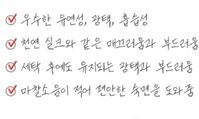 우수한 유연성, 광택, 흡습성
천연 실크와 같은 매끄러움과 부드러움
세탁 후에도 유지되는 광택과 부드러움
마찰소음이 적어 편안한 숙면을 도와줌